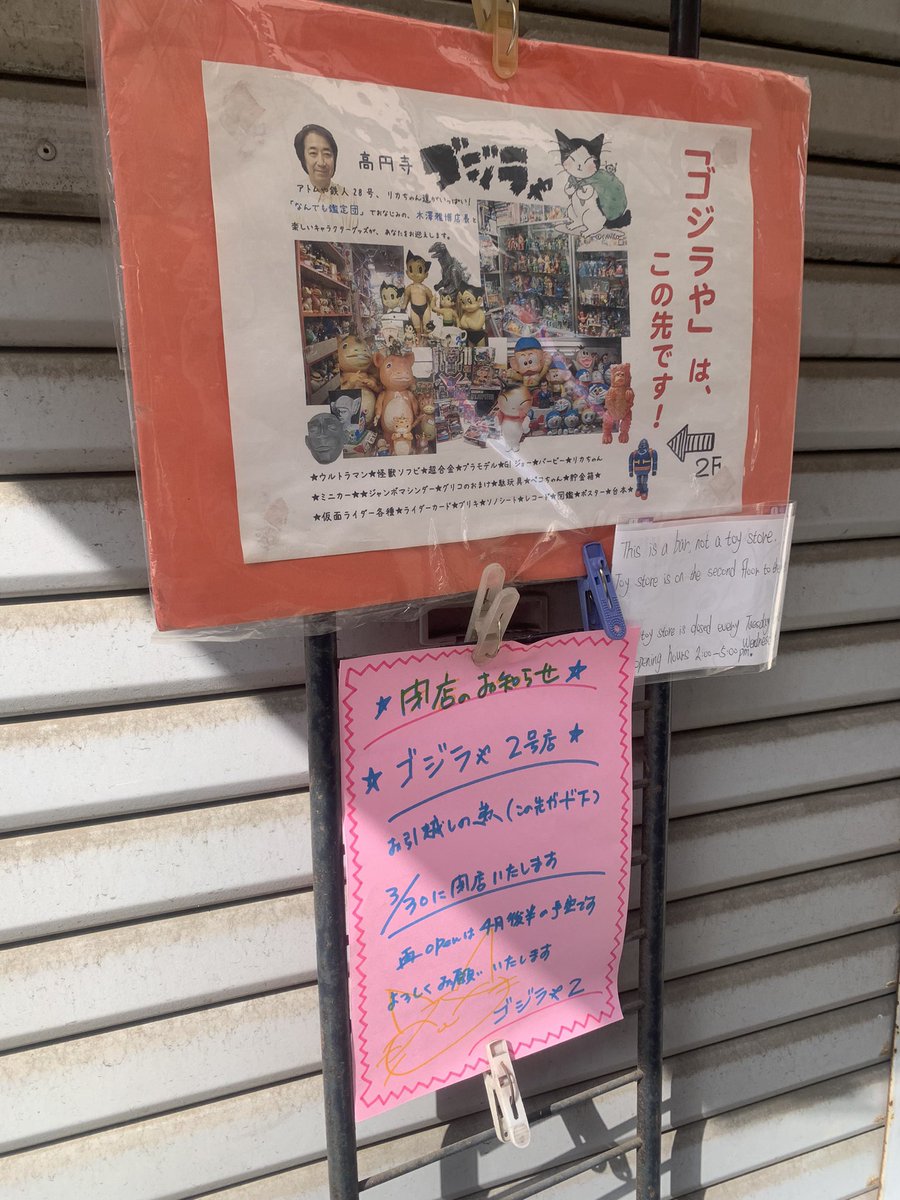 高円寺 ゴジラや
アトムや鉄人28号、リカちゃん達がいっぱい!
「なんでも鑑定団」でおなじみの、木澤雅博店長と
楽しいキャラクターグッズが、あなたをお迎えします。
「ゴジラや」は、
この先です!
2F
★ウルトラマン★怪獣ソフビ★超合金★プラモデル★GIジョー★バービー★リカちゃん
★ミニカー★★ジャンボマシンダー★グリコのおまけ★駄玩具★ペコちゃん★貯金箱★
★仮面ライダー各種★ライダーカード★ブリキ★ソノシート★レコード★図鑑★ポスター★台本★
This is a bar, not a toy store.
Toy store is on the second floor to the
toy store is closed every Tuesday
Wednes
opening hours 2:00-5:00pm.
★閉店のお知らせ★
★ゴジラや 2号店★
お引越しの為(この先ガード下)
3/30に閉店いたします
再openは4月後半の予定です
よろしくお願いいたします
ゴジラや2